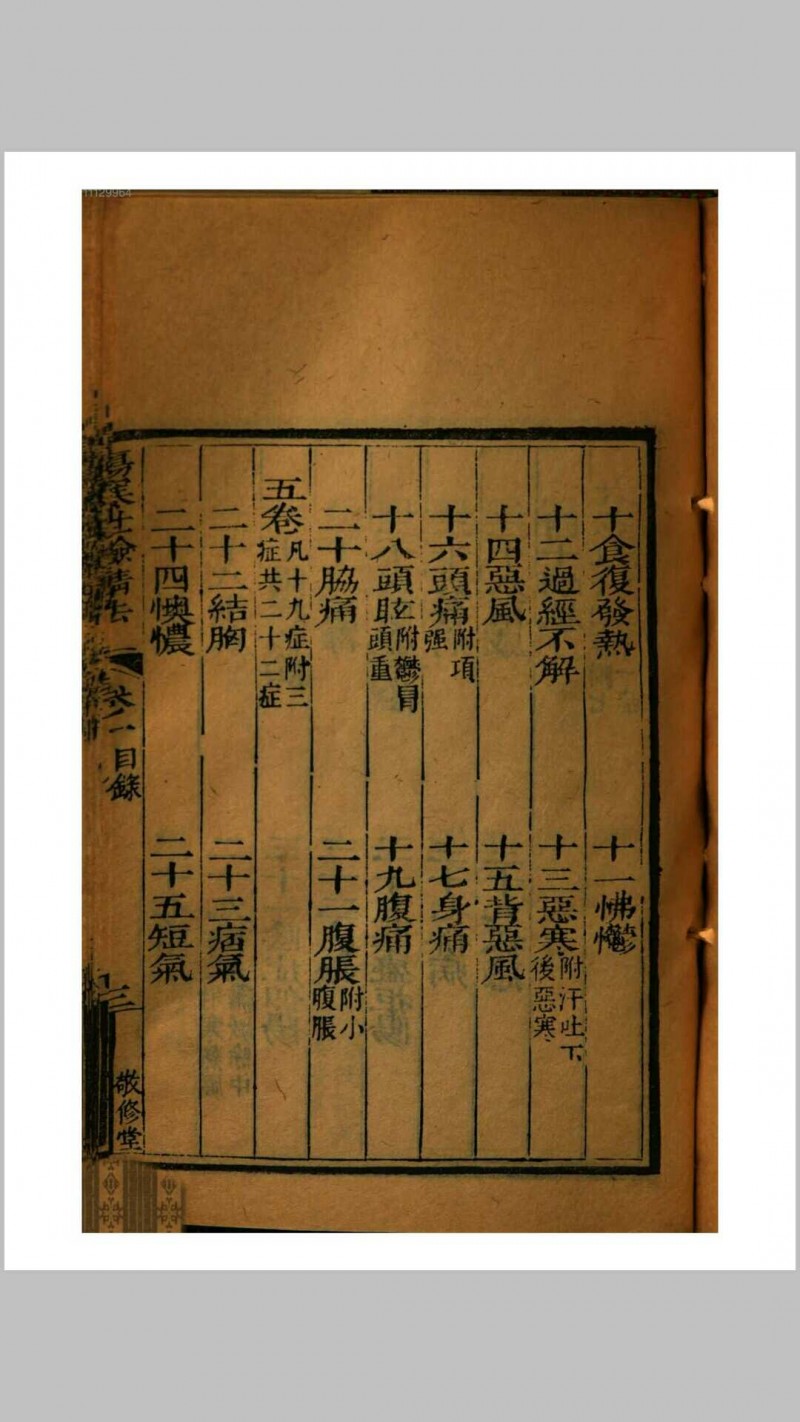 十食復發熱　十一怫鬱
十二過經不解　十三惡寒附汗吐下後惡寒
十四惡風　十五背惡風
十六頭痛附項强　十七身痛
十八頭眩附鬱冒頭重　十九腹痛
二十脇痛　二十一腹脹附小腹脹
五卷凡十九症附三症共二十二症
二十二結胸　二十三痞氣
二十四懊憹　二十五短氣
目錄
三
敬修堂
11129964